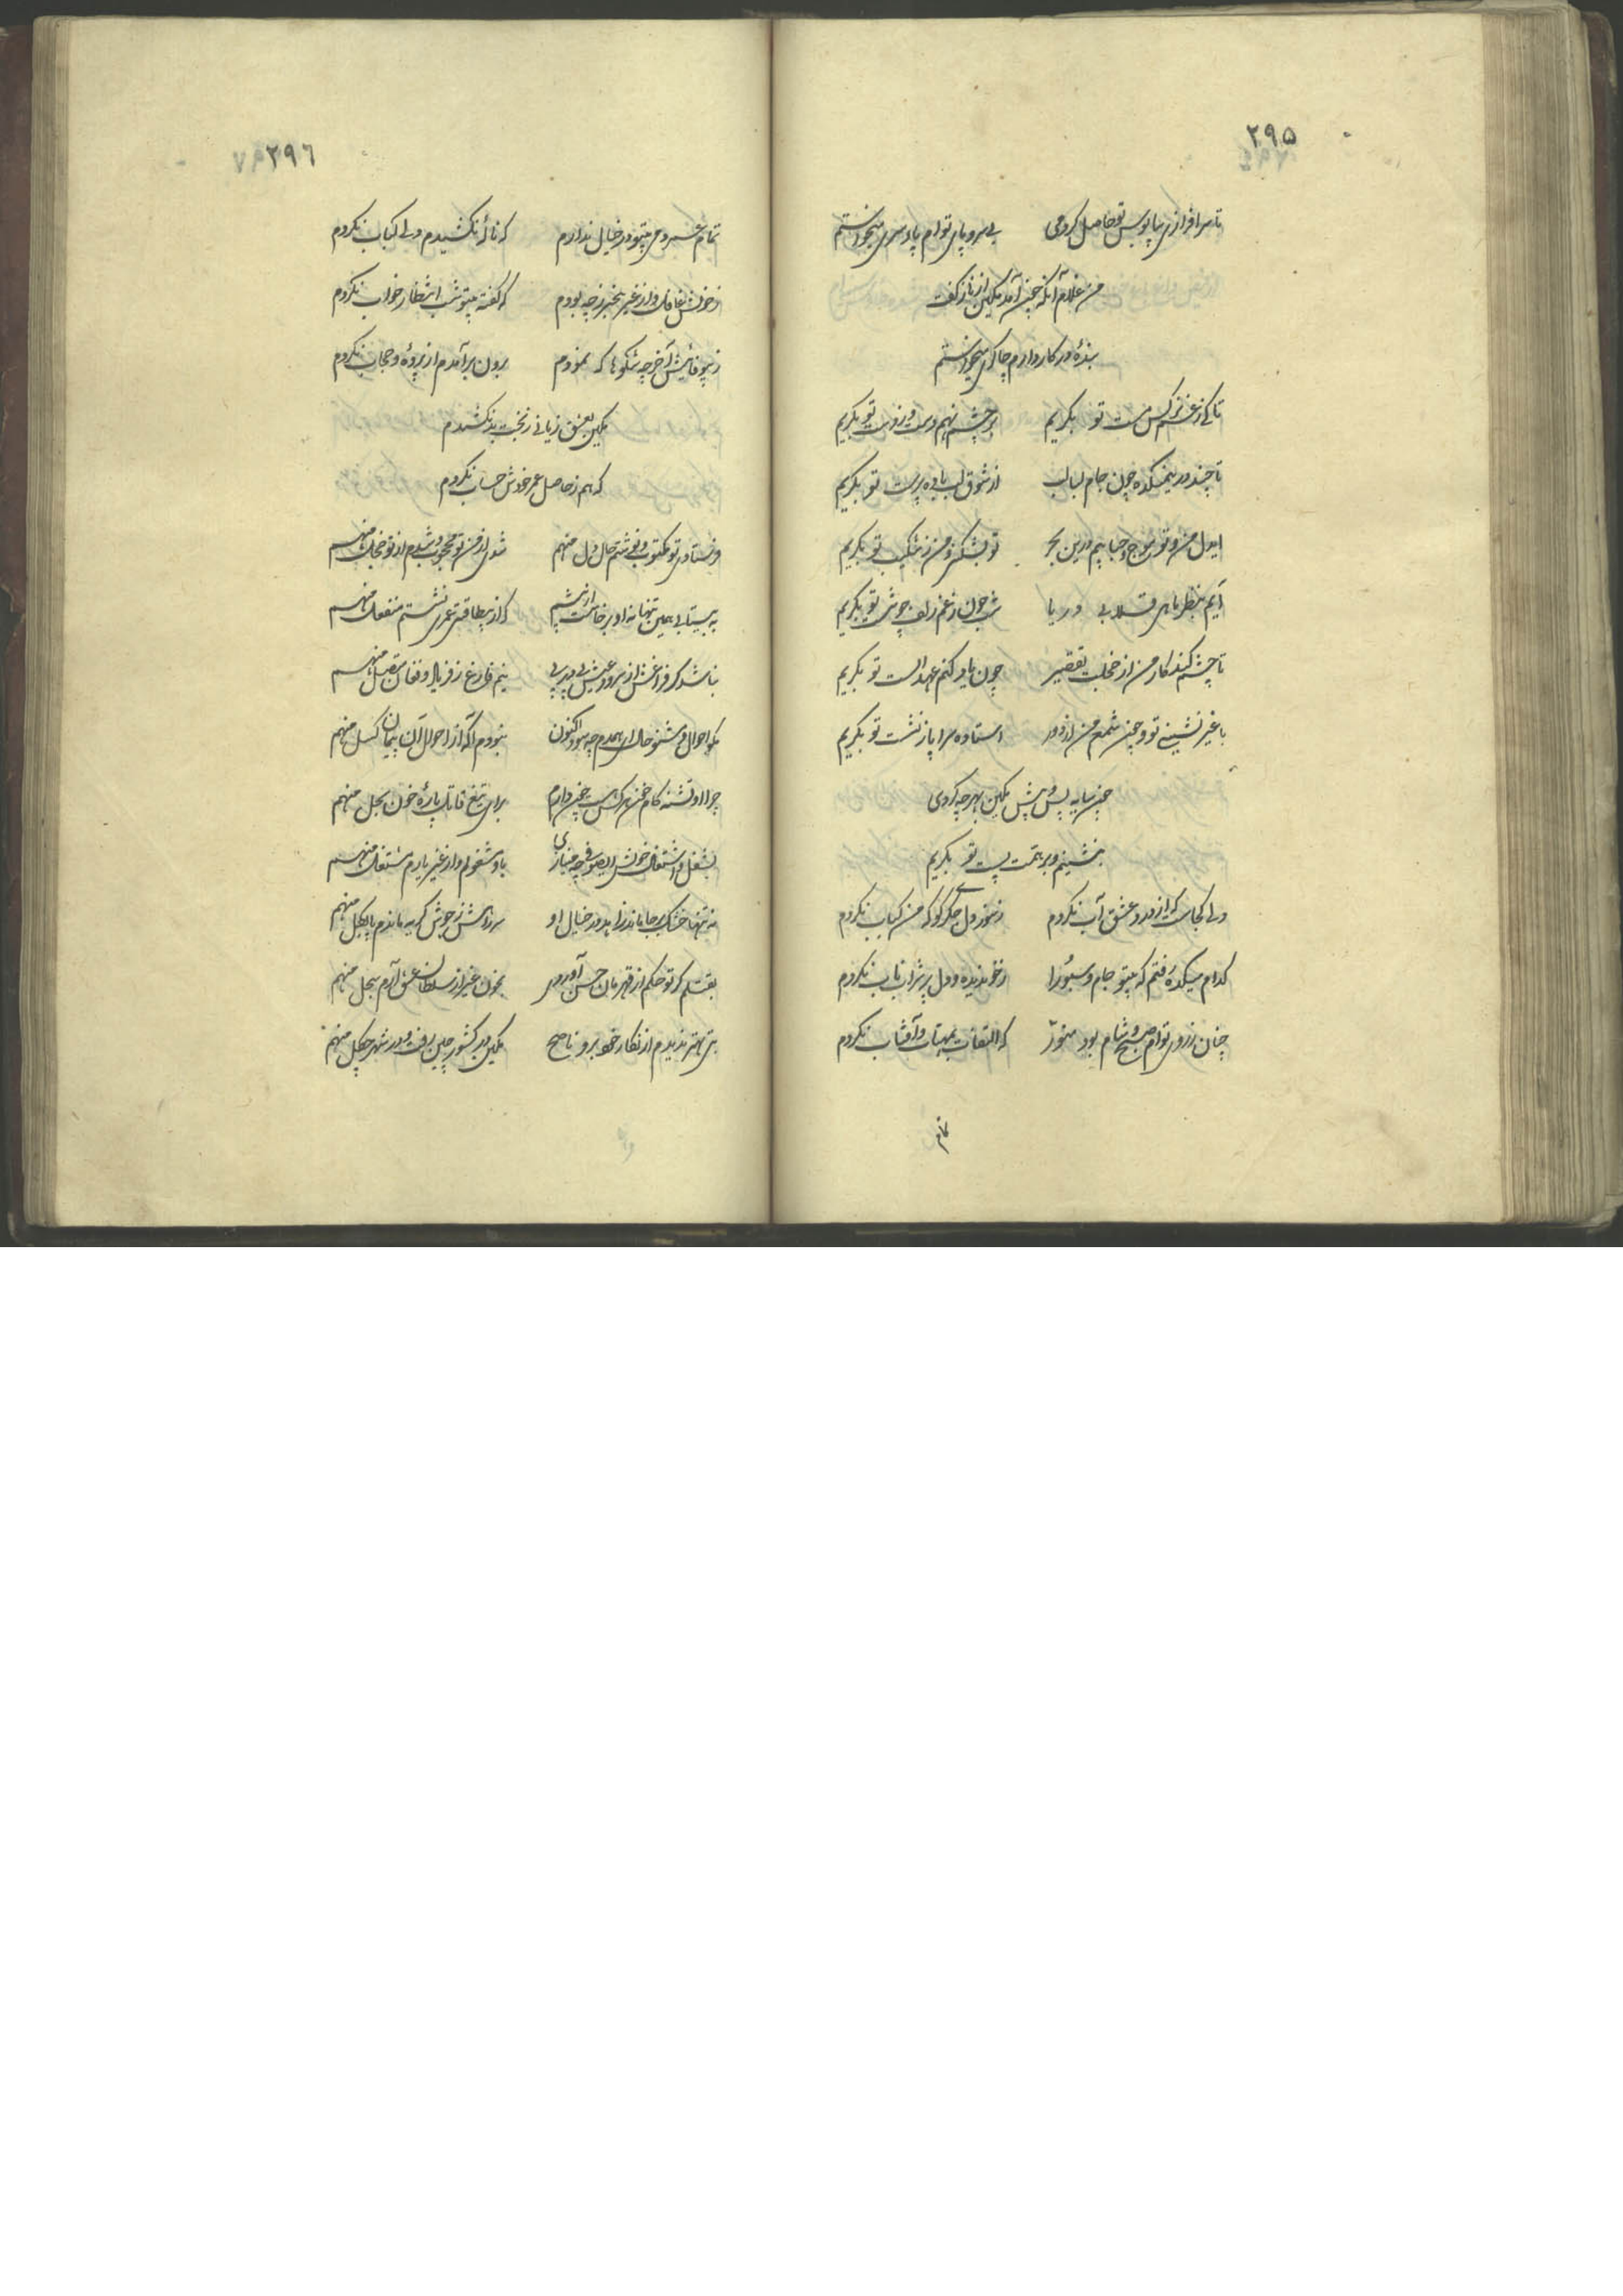 ۲۹۵
تا سرافرازی بپابوس تو حاصل کردمی
بی سر و پای توام پا و سری میخواستم
من غلام آنکه چون آمد مکین از ناز گفت
بنده در کار دارم چاکری میخواستم
تا کی ز غم نرگس مست تو بگریم
بر چشم نهم دست و ز دست تو بگریم
تا چند درین میکده چون جام لبالب
از شوق لب باده پرست تو بگریم
ایدل من و تو موج و حبابیم درین بحر
تو بشکنی و من ز شکست تو بگریم
آیم بنظر ماهی قلاب دریا
شب چون ز غم زلف چو شست تو بگریم
تا چشم کند کار من از خجلت تقصیر
چون یاد کنم عهد الست تو بگریم
با غیر نشینی تو و چون شمع من از دور
استاده سراپا ز نشست تو بگریم
چون سایه پس و پیش مکین بهر چه گردی
بنشینم و بر همت پست تو بگریم
دلی کجاست که از درد عشق آب نکردم
ز سوز دل جگری کو که من کباب نکردم
کدام میکده رفتم که بیتو جام و سبو را
ز خون دیده و دل پر شراب ناب نکردم
چنان ز روی توام صبح و شام بود منور
که التفات بمهتاب و آفتاب نکردم
۲۹۶
تمام عمر دمی بیتو در خیال ندارم
که ناله نکشیدم دلی کباب نکردم
ز خویش غافل و از غیر بیخبر ز چه بودم
که گفته بیتو شب انتظار خواب نکردم
ز بیوفائیش آخر چه شکوها که نمودم
برون برآمدم از پرده و حجاب نکردم
مکین بعشق زیانی ز بخت بد نکشیدم
که هم ز حاصل عمر خودش حساب نکردم
فرستادی تو مکتوب و نوشتم حال دل منهم
شدی از من تو محجوب و شدم از تو خجل منهم
به بیتابی همین تنها نه او برخاست از پیشم
که از بیطاقتی عمری نشستم منفعل منهم
نباشد گر فراغش از سرود عیش پی در پی
نیم فارغ ز فریاد و فغان متصل منهم
مگو احوال و مشنو حال ای همدم چه سود اکنون
نبودم آگه از احوال آن پیمان گسل منهم
چرا او تشنه کام خون هر کس هست چون دارم
برای تیغ قاتل پاره خون بحل منهم
بشغل و اشتغال خویش ای صوفی چه مینازی
باو مشغولم و از غیر یارم مشتغل منهم
نه تنها خشک برجا ماند زاهد در خیال او
سر راهش ز جوش گریه ماندم پا بگل منهم
بقتلم گر تو حکم از قهرمان حسن آوردی
بخون غیر از سلطان عشق آرم سجل منهم
بتی بهتر ندیدم از نگار خوبرو ناصح
مکین در کشور چین رفت و در شهر چگل منهم